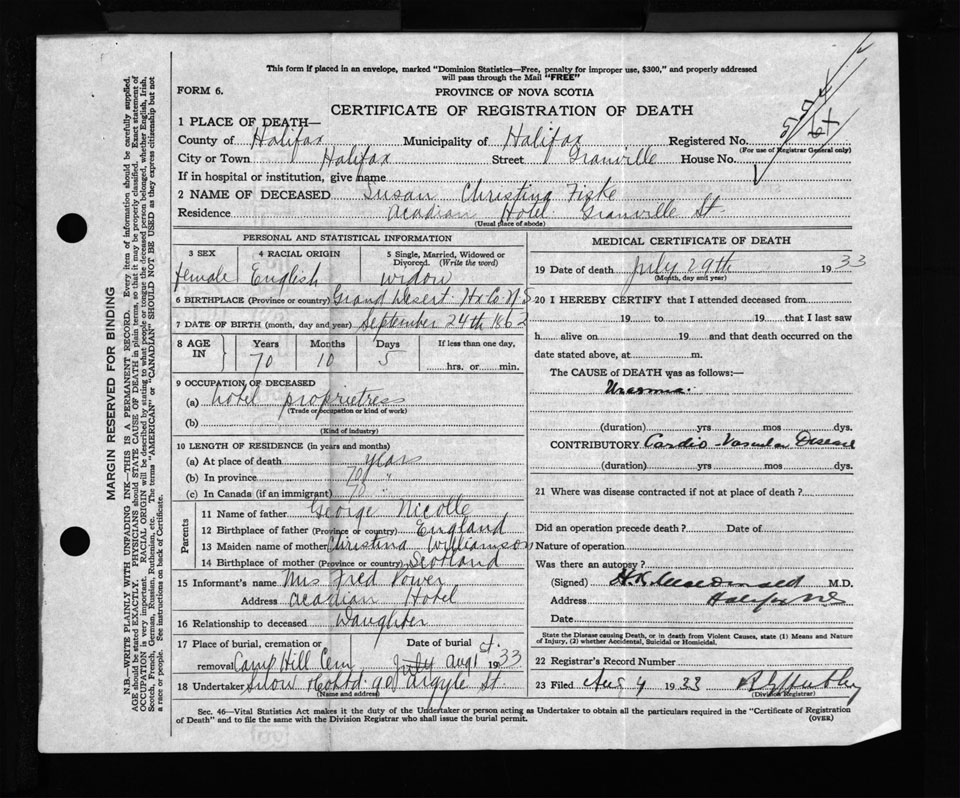 This form if placed in an envelope, marked "Dominion Statistics—Free, penalty for improper use, $300," and properly addressed
will pass through the Mail "FREE"
FORM 6.
PROVINCE OF NOVA SCOTIA
CERTIFICATE OF REGISTRATION OF DEATH
1 PLACE OF DEATH—
County of Halifax Municipality of Halifax Registered No.
(For use of Registrar General only)
City or Town Halifax Street Granville House No.
If in hospital or institution, give name
2 NAME OF DECEASED Susan Christina Fiske
Residence Acadian Hotel Granville St.
(Usual place of abode)
PERSONAL AND STATISTICAL INFORMATION
3 SEX 4 RACIAL ORIGIN 5 Single, Married, Widowed or
Divorced. (Write the word)
female English widow
6 BIRTHPLACE (Province or country) Grand Desert Hx Co N S
7 DATE OF BIRTH (month, day and year) September 24th 1862
8 AGE IN Years Months Days If less than one day,
70 10 5 hrs. or min.
9 OCCUPATION OF DECEASED
(a) hotel proprietress
(Trade or occupation or kind of work)
(b)
(Kind of industry)
10 LENGTH OF RESIDENCE (in years and months)
(a) At place of death years
(b) In province 70 "
(c) In Canada (if an immigrant) 70 "
Parents
11 Name of father George Nicolle
12 Birthplace of father (Province or country) England
13 Maiden name of mother Christina Williamson
14 Birthplace of mother (Province or country) Scotland
15 Informant's name Mrs Fred Power
Address Acadian Hotel
16 Relationship to deceased Daughter
17 Place of burial, cremation or Date of burial
removal Camp Hill Cem July Aug 1st 1933
18 Undertaker Snow & Co Ltd 90 Argyle St.
(Name and address)
MEDICAL CERTIFICATE OF DEATH
19 Date of death July 29th 1933
(Month, day and year)
20 I HEREBY CERTIFY that I attended deceased from
19 to 19 that I last saw
h alive on 19 and that death occurred on the
date stated above, at m.
The CAUSE of DEATH was as follows:—
Uraemia.
(duration) yrs mos dys.
CONTRIBUTORY Cardio-Vascular Disease
(duration) yrs mos dys.
21 Where was disease contracted if not at place of death?
Did an operation precede death? Date of
Nature of operation
Was there an autopsy?
(Signed) MacDonald M.D.
Address Halifax N.S
Date
State the Disease causing Death, or in death from Violent Causes, state (1) Means and Nature
of Injury, (2) whether Accidental, Suicidal or Homicidal.
22 Registrar's Record Number
23 Filed Aug 4 1933
(Division Registrar)
Sec. 46—Vital Statistics Act makes it the duty of the Undertaker or person acting as Undertaker to obtain all the particulars required in the "Certificate of Registration
of Death" and to file the same with the Division Registrar who shall issue the burial permit. (OVER)
MARGIN RESERVED FOR BINDING
N.B.—WRITE PLAINLY WITH UNFADING INK—THIS IS A PERMANENT RECORD. Every item of information should be carefully supplied.
AGE should be stated EXACTLY. PHYSICIANS should STATE CAUSE OF DEATH in plain terms, so that it may be properly classified. Exact statement of
OCCUPATION is very important. RACIAL ORIGIN will be described by stating to what people or tongue the deceased person belonged, whether English, Irish,
Scotch, French, German, Russian, Ruthenian, etc. The terms "AMERICAN" or "CANADIAN" SHOULD NOT BE USED as they express citizenship but not
a race or people. See instructions on back of Certificate.